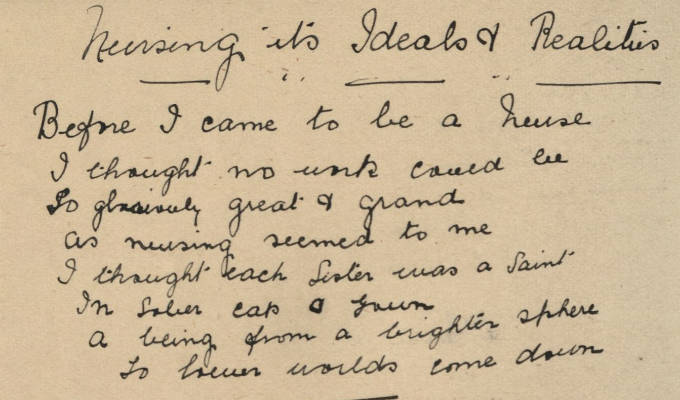 Nursing it's Ideals & Realities
Before I came to be a Nurse
I thought no work could be
So gloriously great & grand
as nursing seemed to me
I thought each Sister was a Saint
In sober cap & gown
A being from a brighter sphere
To lower worlds come down